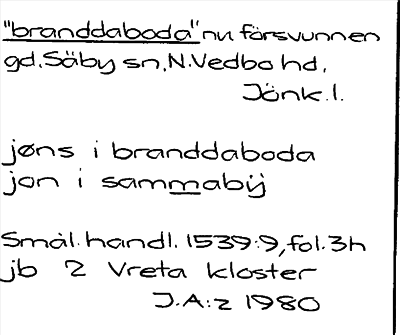 "branddaboda" nu försvunnen
gd. Säby sn, N. Vedbo hd,
Jönk. l.
jøns i branddaboda
jon i sammabÿ
Smål. handl. 1539:9, fol. 3h
jb 2 Vreta kloster
J.A:z 1980